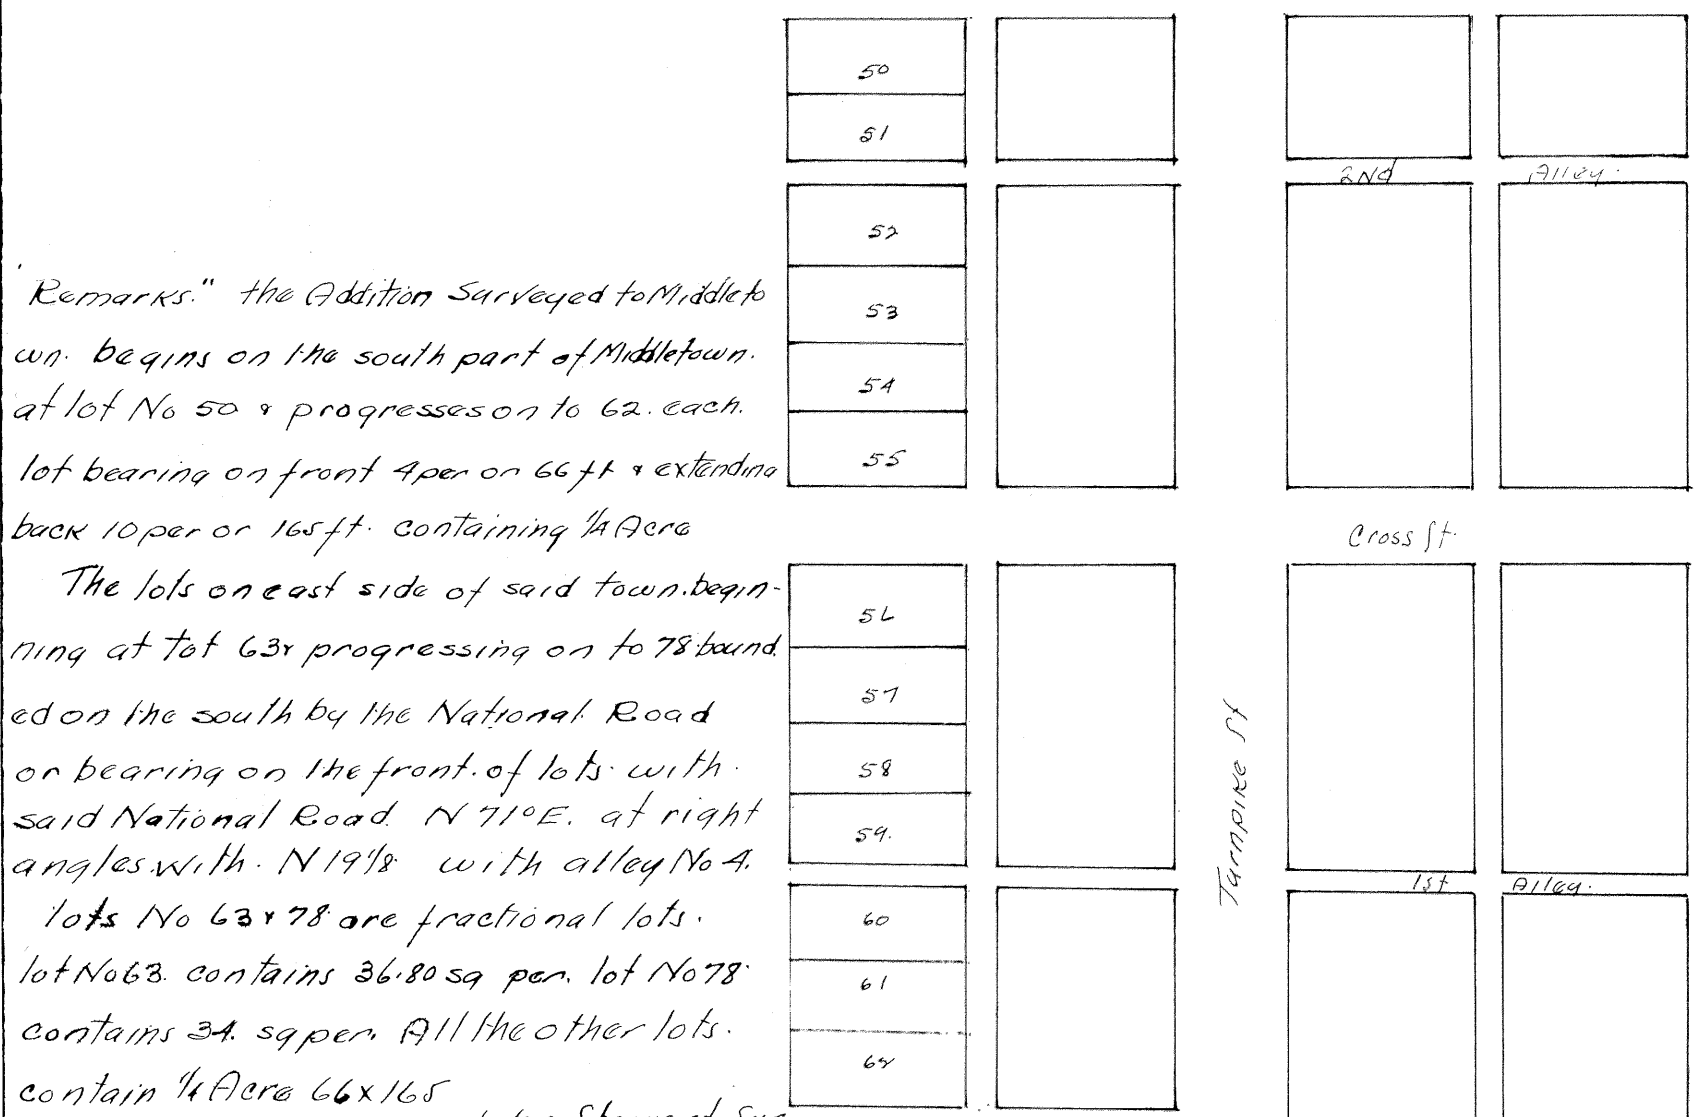 "Remarks." the Addition Surveyed to Middleto
wn. begins on the south part of Middletown.
at lot No 50 & progresses on to 62. each.
lot bearing on front 4 per or 66 ft & extending
back 10 per or 165 ft. containing 1/4 Acre
The lots on east side of said town. begin-
ning at tot 63 & progressing on to 78 bound.
ed on the south by the National Road
or bearing on the front. of lots. with.
said National Road. N 71° E. at right
angles with. N 19 1/8 with alley No 4.
lots No 63 & 78 are fractional lots.
lot No 63. contains 36.80 sq per. lot No 78
contains 34. sq per. All the other lots.
contain 1/4 Acre 66 x 165
50
51
52
53
54
55
56
57
58
59.
60
61
62
2Nd Alley.
Cross St.
Turnpike St
1st Alley.